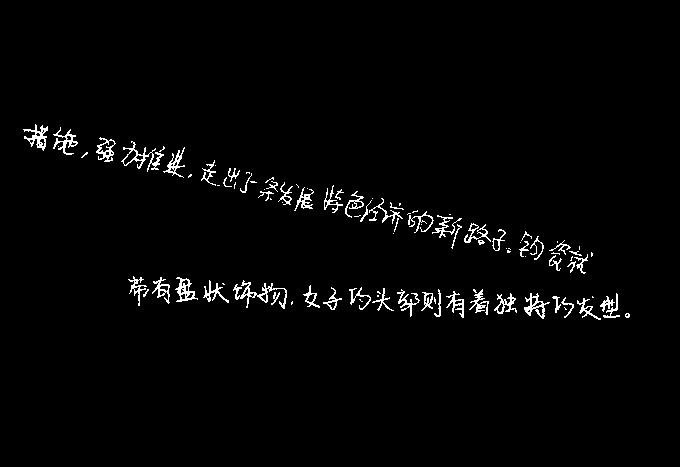 措施,强力推进,走出了一条发展特色经济的新路子。钧瓷就
带有盘状饰物,女子的头部则有着独特的发型。